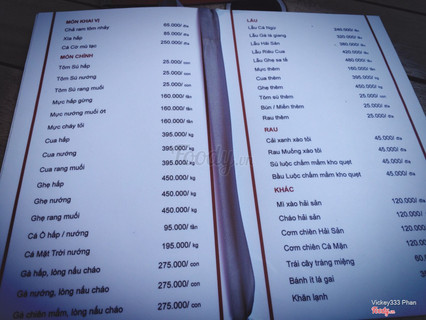 MÓN KHAI VỊ
Chả ram tôm nhảy 65.000/ dĩa
Xía hấp 65.000/ dĩa
Cá Cờ mù tạc 250.000/ dĩa
MÓN CHÍNH
Tôm Sú hấp 25.000/ con
Tôm Sú nướng 25.000/ con
Tôm Sú rang muối 25.000/ con
Mực hấp gừng 160.000/ lần
Mực nướng muối ớt 160.000/ lần
Mực chấy tỏi 160.000/ lần
Cua hấp 395.000/ kg
Cua nướng 395.000/ kg
Cua rang muối 395.000/ kg
Ghẹ hấp 450.000/ kg
Ghẹ nướng 450.000/ kg
Ghẹ rang muối 450.000/ kg
Cá Ồ hấp / nướng 95.000/ lần
Cá Mặt Trời nướng 195.000/ kg
Gà hấp, lòng nấu cháo 275.000/ con
Gà nướng, lòng nấu cháo 275.000/ con
Gà chiên mắm, lòng nấu cháo 275.000/ con
LẨU
Lẩu Cá Ngừ
Lẩu Gà lá giang
Lẩu Hải Sản
Lẩu Riêu Cua
Lẩu Ghẹ sa tế
Mực thêm 160.000/
Cua thêm 395.000/ kg
Ghẹ thêm 450.000/ kg
Tôm sú thêm 25.000/ con
Bún / Miến thêm 25.000/ dĩa
Rau thêm 25.000/ dĩa
RAU
Cải xanh xào tỏi 45.000/ dĩa
Rau Muống xào tỏi 45.000/ dĩa
Su luộc chấm mắm kho quẹt 45.000/ dĩa
Bầu Luộc chấm mắm kho quẹt 45.000/ dĩa
KHÁC
Mì xào hải sản 120.000/ dĩa
Cháo hải sản 120.000/
Cơm chiên Hải Sản 120.000/
Cơm chiên Cá Mặn 120.000/
Trái cây tráng miệng 60.0
Bánh ít lá gai
Khăn lạnh
foody.vn
Vickey333 Phan
Foody.vn